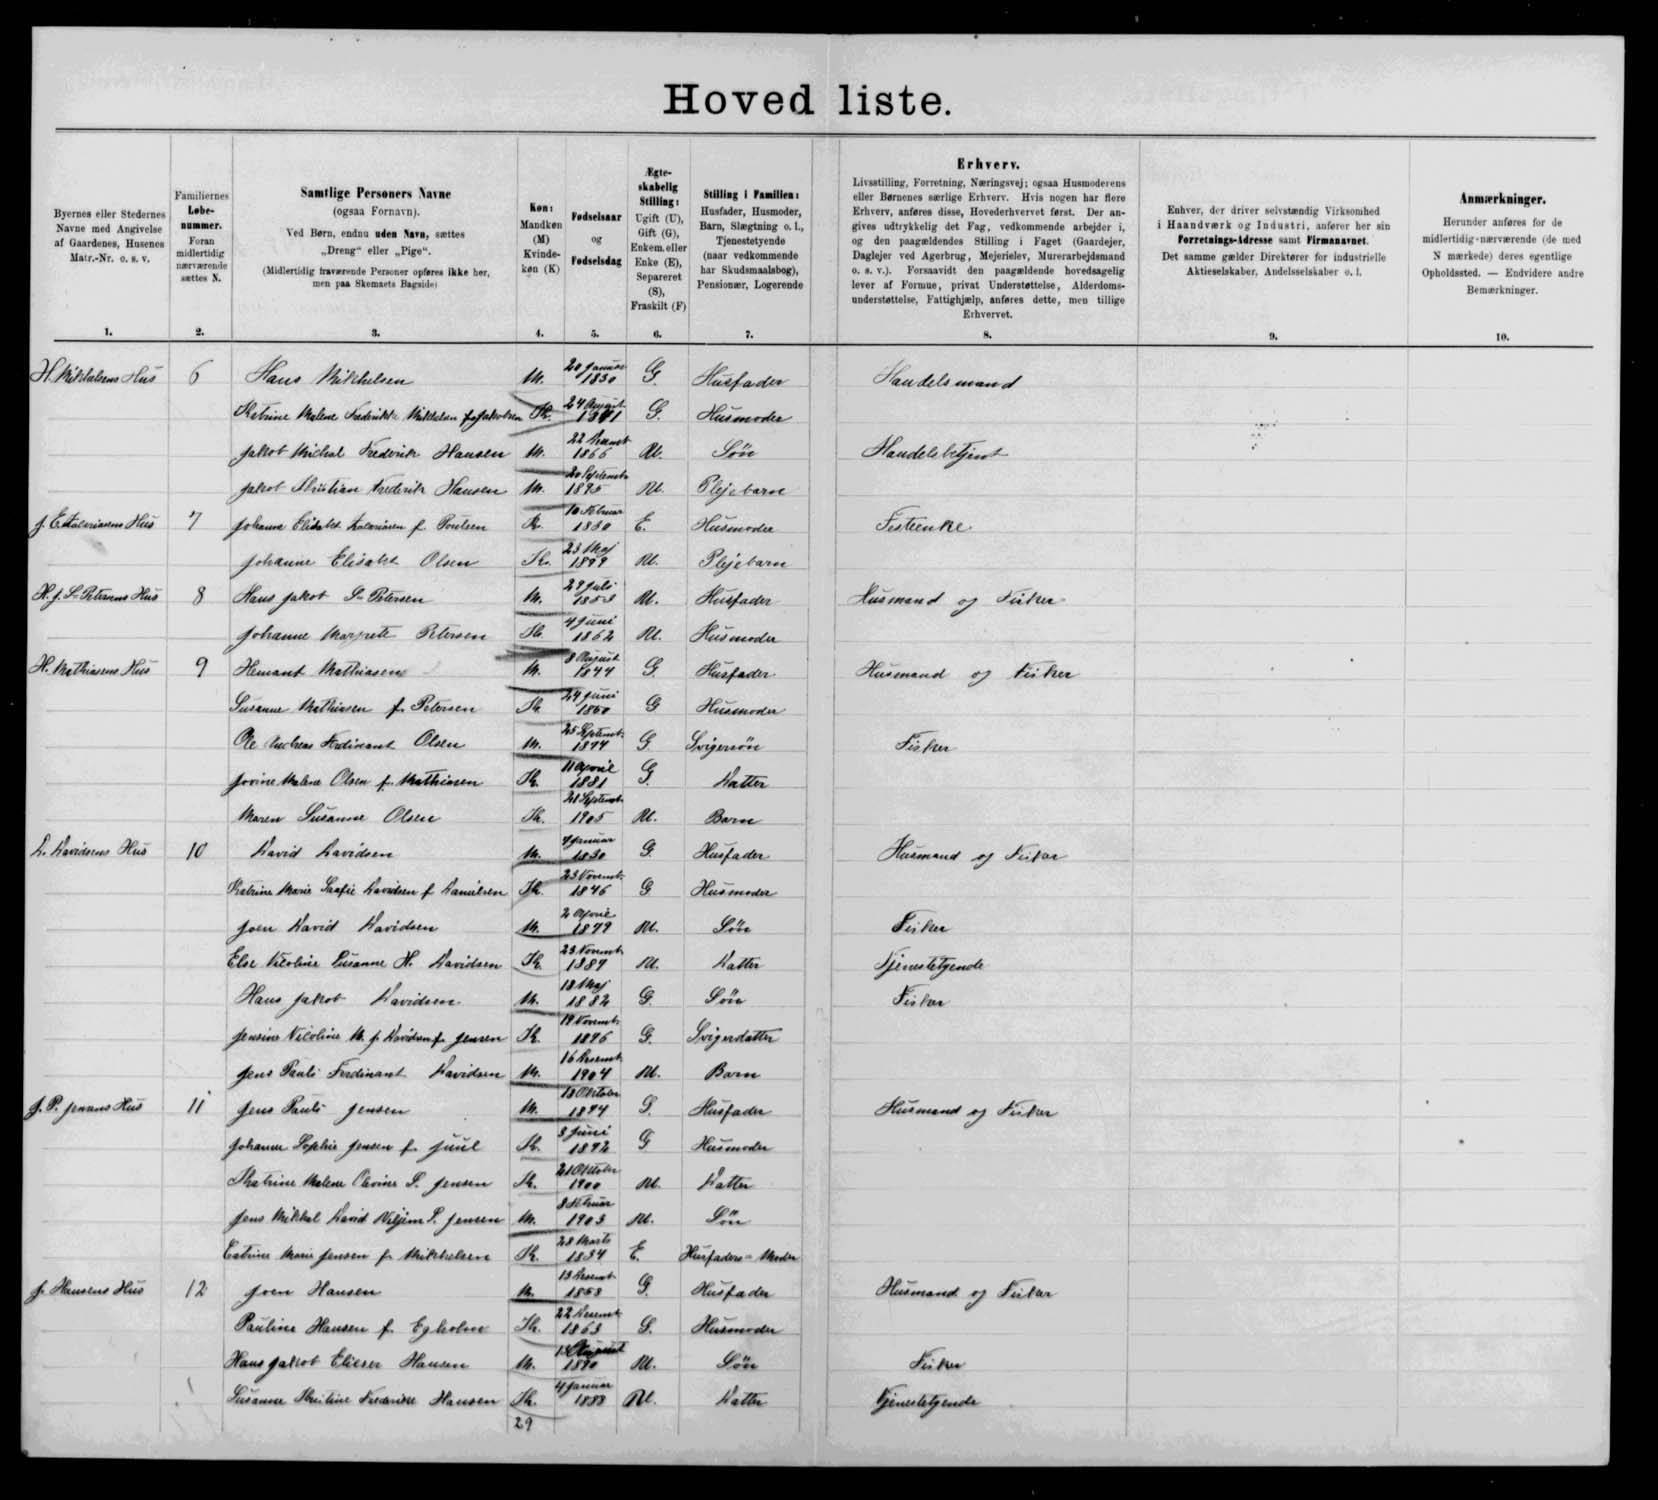 Hoved liste.
Byernes eller Stedernes
Navne med Angivelse
af Gaardenes, Husenes
Matr.-Nr. o. s. v.
1.
Familiernes
Løbe-
nummer.
Foran
midlertidig
nærværende
sættes N.
2.
Samtlige Personers Navne
(ogsaa Fornavn).
Ved Børn, endnu uden Navn, sættes
„Dreng“ eller „Pige“.
(Midlertidig fraværende Personer opføres ikke her,
men paa Skemaets Bagside)
3.
Køn:
Mandkøn
(M)
Kvinde-
køn (K)
4.
Fødselsaar
og
Fødselsdag
5.
Ægte-
skabelig
Stilling:
Ugift (U),
Gift (G),
Enkem. eller
Enke (E),
Separeret
(S),
Fraskilt (F)
6.
Stilling i Familien:
Husfader, Husmoder,
Barn, Slægtning o. l.,
Tjenestetyende
(naar vedkommende
har Skudsmaalsbog),
Pensionær, Logerende
7.
Erhverv.
Livsstilling, Forretning, Næringsvej; ogsaa Husmoderens
eller Børnenes særlige Erhverv. Hvis nogen har flere
Erhverv, anføres disse, Hovederhvervet først. Der an-
gives udtrykkelig det Fag, vedkommende arbejder i,
og den paagældendes Stilling i Faget (Gaardejer,
Daglejer ved Agerbrug, Mejerielev, Murerarbejdsmand
o. s. v.). Forsaavidt den paagældende hovedsagelig
lever af Formue, privat Understøttelse, Alderdoms-
understøttelse, Fattighjælp, anføres dette, men tillige
Erhvervet.
8.
Enhver, der driver selvstændig Virksomhed
i Haandværk og Industri, anfører her sin
Forretnings-Adresse samt Firmanavnet.
Det samme gælder Direktører for industrielle
Aktieselskaber, Andelsselskaber o. l.
9.
Anmærkninger.
Herunder anføres for de
midlertidig-nærværende (de med
N mærkede) deres egentlige
Opholdssted. — Endvidere andre
Bemærkninger.
10.
H. Mikkelsens Hus 6 Hans Mikkelsen M. 20 Januar 1830 G. Husfader Handelsmand
Katrine Malene Fredrikke Mikkelsen f. Jakobsen K. 24 August G. Husmoder
Jakob Michal Frederik Hansen M. 1866 U. Søn Handelsbetjent
Jakob Kristian Frederik Hansen M. 20 Septemb. 1895 U. Plejebarn
Hus 7 Johanne Elisabet f. Poulsen K. 10 Februar 1830 E. Husmoder
Johanne Elisabet Olsen K. 23 Maj 1899 U. Plejebarn
H. J. S. Petersens Hus 8 Hans Jakob S. Petersen M. 29 Juli 1853 U. Husfader Husmand og Fisker
Johanne Margrete Petersen K. 4 Juni 1862 U. Husmoder
H. Mathiasens Hus 9 Hemant Mathiasen M. 8 August 1844 G. Husfader Husmand og Fisker
Susanne Mathiasen f. Petersen K. 24 Juni 1850 G Husmoder
Ole Andreas Ferdinant Olsen M. 25 Septemb. G. Svigersøn Fisker
Jovine Malene Olsen f. Mathiasen K. 11 April 1881 G. Datter
Maren Susanne Olsen K. 21 Septemb. 1905 U. Barn
D. Davidsens Hus 10 David Davidsen M. 4 Januar 1830 G. Husfader Husmand og Fisker
Katrine Marie Saafie Davidsen f. Danielsen K. 23 Novemb. 1846 G Husmoder
Joen David Davidsen M. 2 April 1879 U. Søn Fisker
Else Nicoline Susanne H. Davidsen K. 23 Novemb. U. Datter Tjenestetyende
Hans Jakob Davidsen M. 18 Maj 1882 G. Søn Fisker
Jensine Nicoline M. J. Davidsen f. Jensen K. 19 Novemb. G. Svigerdatter
Jens Pauli Ferdinant Davidsen M. 16 Desemb. 1904 U. Barn
J. P. Jensens Hus 11 Jens Pauli Jensen M. 18 Oktober G. Husfader Husmand og Fisker
Johanne Sophie Jensen f. Juul K. 8 Juni G Husmoder
Katrine Malene Olevine S. Jensen K. 21 Oktober 1900 U. Datter
Jens Mikkal David Viljem S. Jensen M. 8 Februar 1903 U. Søn
Catrine Marie Jensen f. Mikkelsen K. 28 Marts 1834 E. Husfaders-Moder
J. Hansens Hus 12 Joen Hansen M. 13 Desemb. 1858 G. Husfader Husmand og Fisker
Pauline Hansen f. Egholm K. 22 Desemb. 1863 G. Husmoder
Hans Jakob Elieser Hansen M. August 1890 U. Søn Fisker
Susanne Kristine Frederikke Hansen K. 4 Januar 1888 U. Datter Tjenestetyende
29